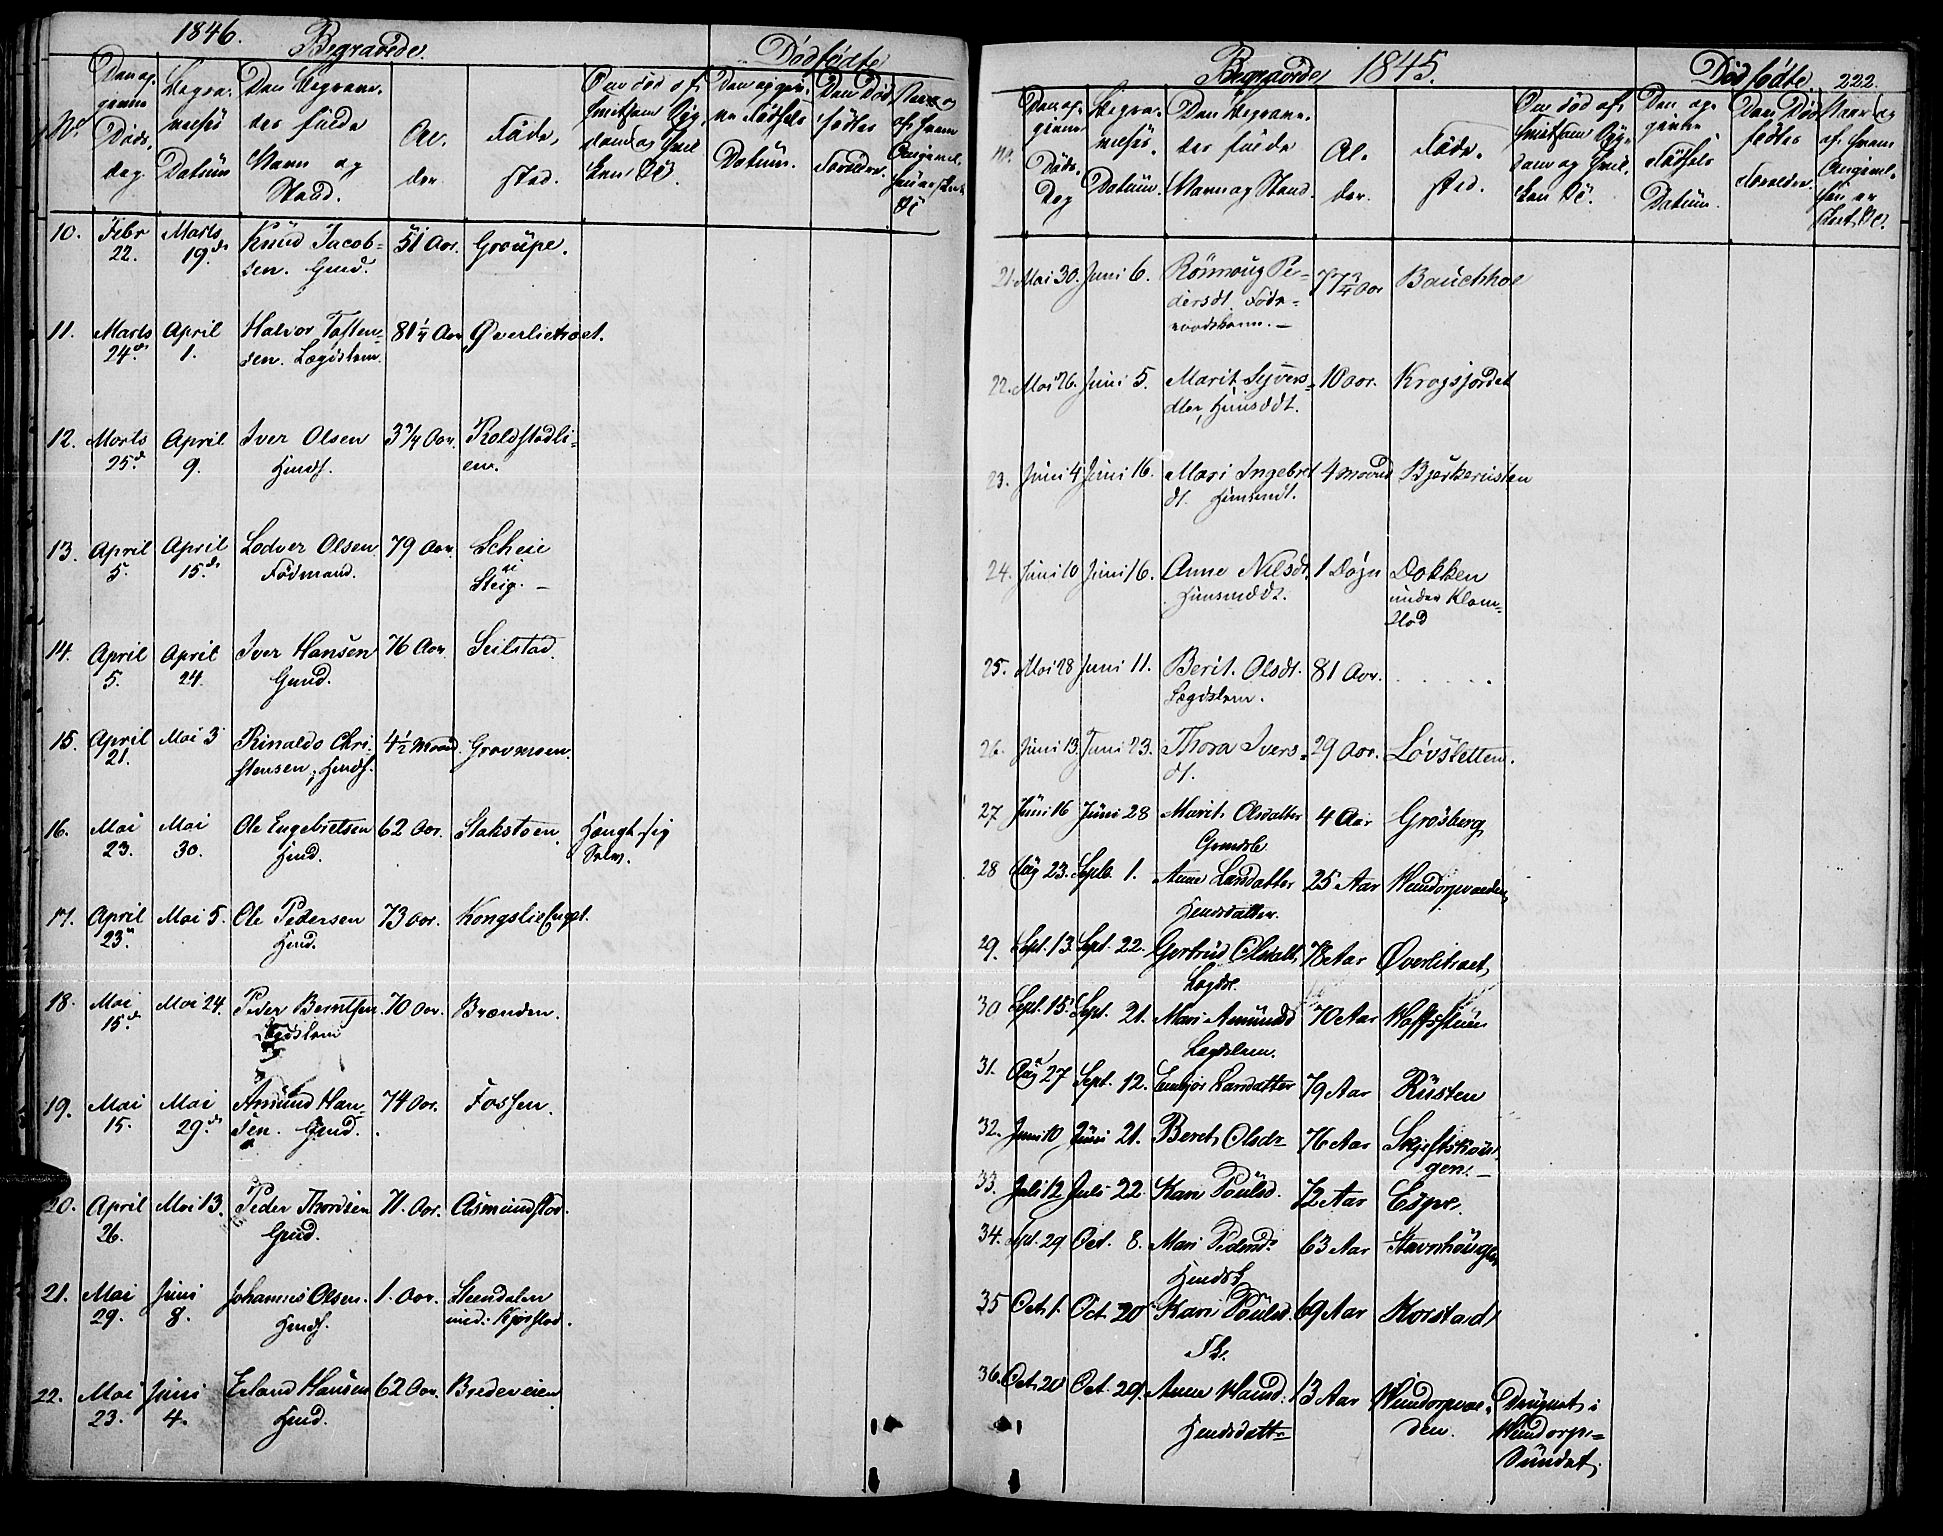 1846.
Begravede.
Dødfødte
No
Den opgivne Døds dag.
Begravelses Datum
Den Begravedes fulde Navn og Stand.
Alder.
Fødested.
Datum.
10. Febr 22. Marts 19de Knud Jacobsen. Gmd. 51 Aar. Graupe.
11. Marts 24de April 1. Halvor Toftensen. Lægdslem. 81 1/4 Aar Øverlietroet.
12. Marts 25d April 9. Iver Olsen Hmdf. 3 3/4 Aar. Roldstadlien.
13. April 5. April 15de Lodver Olsen Fødmand. 79 Aar. Scheie i Steig. —
14. April 5. April 24. Iver Hansen Gmd. 76 Aar Seilstad.
15. April 21. Mai 3 Rinaldo Christensen, Hmdf. 4 1/2 Maaned. Gravmoen.
16. Mai 23. Mai 30. Ole Engebretsen Hmd. 62 Aar. Stakstoen. Hængt sig Selv.
17. April 23. Mai 5. Ole Pedersen Hmd. 73 Aar. Kongslie
18. Mai 15d Mai 24. Peder Berntsen Lægdslem 70 Aar. Brænden.
19. Mai 15. Mai 29de Amund Hansen. Gmd. 74 Aar. Fossen.
20. April 26. Mai 13. Peder Thordsen Gmd. 71. Aar. Asmundstad.
21. Mai 29. Juni 8. Johannes Olsen. Hmdf. 1. Aar. Steendalen und. Kjørstad.
22. Mai 23. Juni 4. Erland Hansen Hmd. 62 Aar. Bredeveien
Begravede 1845.
Dødfødte.
222.
No.
Den opgivne Døds Dag
Begravelses Datum.
Den Begravedes fulde Navn og Stand.
Alder.
Fødested.
Den opgivne Fødsels Datum.
Den Dødfødtes Forældre.
21. Mai 30. Juni 6. Rønnoug Pedersdt. Føderaadskone. — 77 3/4 Aar Bauckhol
22. Mai 26. Juni 5. Marit Syversdter, Huusmdt. 10 Aar. Krogsjordet
23. Juni 4 Juni 16. Mari Ingebretdt. Husmdt. 4 Maaned Bjerkerusten
24. Juni 10 Juni 16. Anne Nilsdt. Huusmddt. 1 Døgn Dokken under Klomstad
25. Mai 28 Juni 11. Berit. Olsdt. Lægdslem. 81 Aar. . . . . .
26. Juni 13. Juni 23. Thora Iversdt. 29 Aar. Løvsletten.
27 Juni 16 Juni 28 Marit Olsdatter 4 Aar Grosberg
28 Aug 23. Septb 1. Anne Larsdatter Hmdsdatter. 25 Aar Hundorpvaaden
29. Sept. 13. Sept. 22. Gertrud Olsdatt. Lægdsl. 78 Aar Øverlitraet
30 Sept. 15. Sept. 21. Mari Amundsd Lægdslem. 70 Aar Hoffstuen
31. Aug 27 Sept. 12. Embjør Larsdatter 79 Aar Rusten
32. Juni 10 Juni 21. Beret Olsdr 76 Aar Skjeftshaugen. —
33. Juli 12 Juli 22. Kari Poulsd. 72 Aar Espe.
34. Sept. 29 Oct. 8. Mari Pedersd. 63 Aar Stavnhougen
35 Oct. 1. Oct. 20 Kari Poulsd. 69 Aar Korstad
36. Oct. 20 Oct. 29. Anne Hmdsdatt 13 Aar Hundorpvaaden. Druknet i Hundorpe-Sundet.